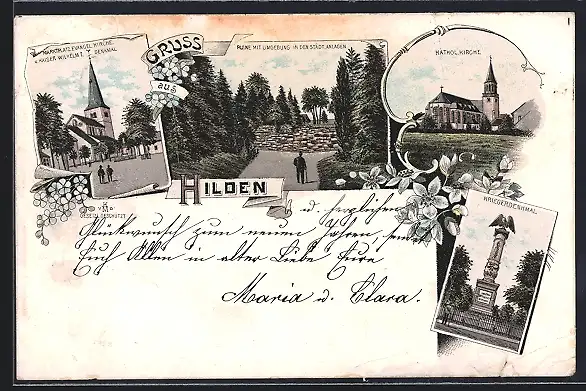 MARKTPLATZ EVANGEL. KIRCHE.
u. KAISER WILHELM I. DENKMAL
GRUSS
aus
HILDEN
RUINE MIT UMGEBUNG IN DEN STÄDT. ANLAGEN
KATHOL. KIRCHE
KRIEGERDENKMAL
GESETZL. GESCHÜTZT
u. herzlichen
Glückwunsch zum neuen Jahren,
Euch Allen in alter Liebe Eure
Maria u. Clara.